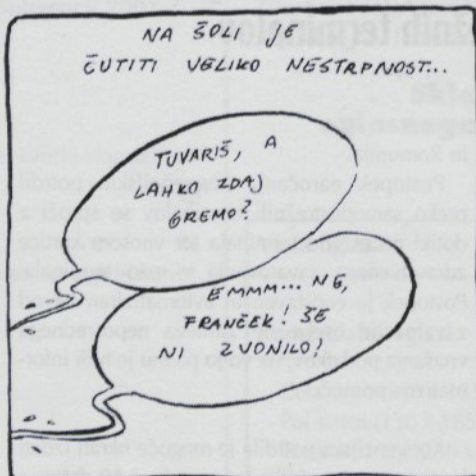 NA ŠOLI JE
ČUTITI VELIKO NESTRPNOST...
TUVARIŠ, A
LAHKO ZDAJ
GREMO?
EMMM... NE,
FRANČEK! ŠE
NI ZVONILO!